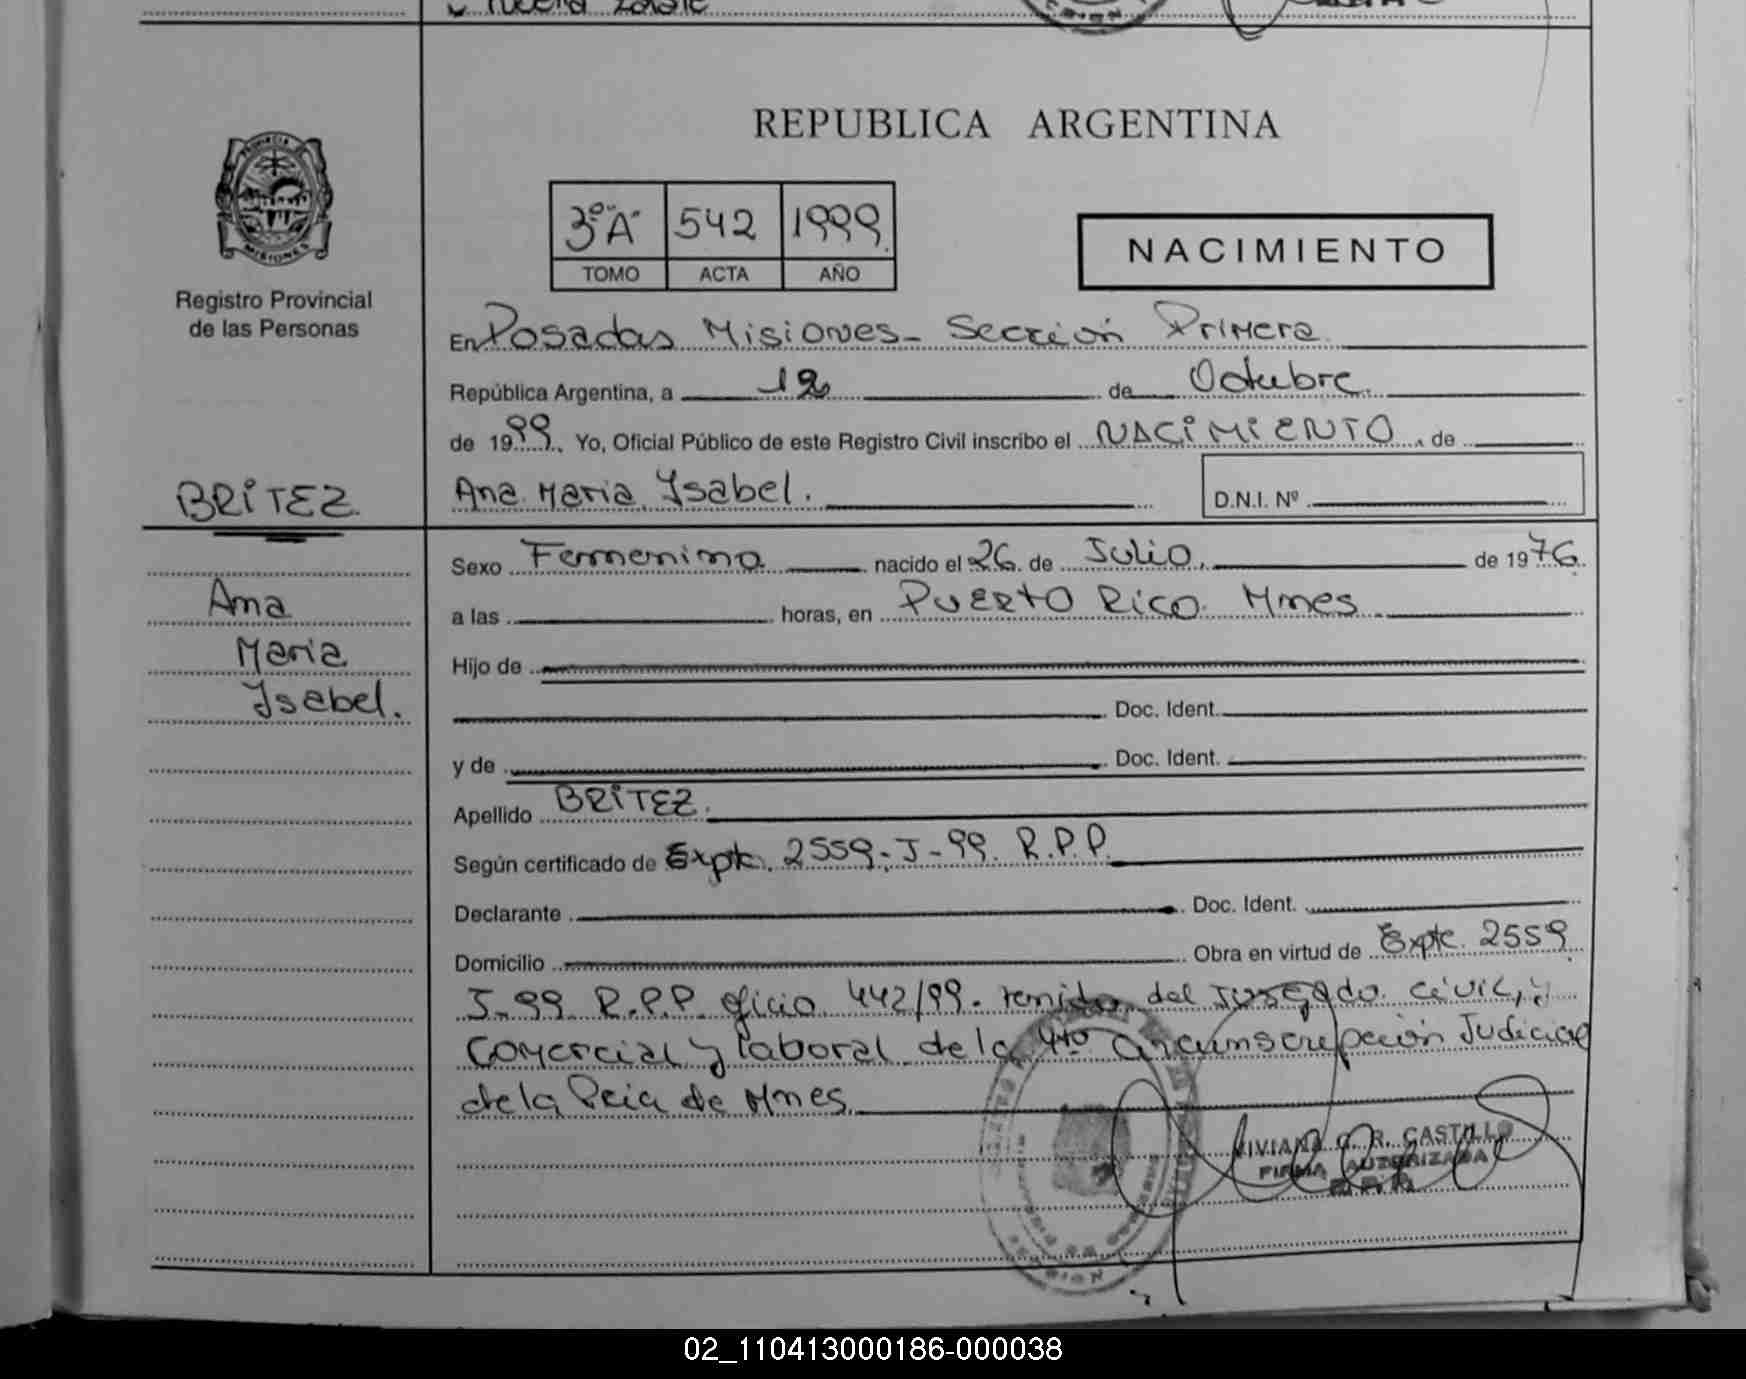 REPUBLICA ARGENTINA
PROVINCIA DE
MISIONES
Registro Provincial
de las Personas
3º "A" 542 1999
TOMO ACTA AÑO
NACIMIENTO
En Posadas Misiones - Sección Primera
República Argentina, a 12 de Octubre.
de 1999. Yo, Oficial Público de este Registro Civil inscribo el NACIMIENTO, de
BRITEZ
Ana Maria Ysabel.
D.N.I. Nº
Sexo Femenino nacido el 26 de Julio, de 1976
Ana
a las horas, en PUERTO Rico. Mnes
Maria
Hijo de
Ysabel.
Doc. Ident.
y de Doc. Ident.
Apellido BRITEZ.
Según certificado de Expte. 2559-J-99. R.P.P.
Declarante Doc. Ident.
Domicilio Obra en virtud de Expte. 2559
J-99 R.P.P. oficio 442/99. remido del Jusgado civil,
Comercial y laboral de la 4to Circunscrepción Judicial
de la Pcia de Mnes
VIVIANA G. R. CASTILLO
FIRMA AUTORIZADA
02_110413000186-000038